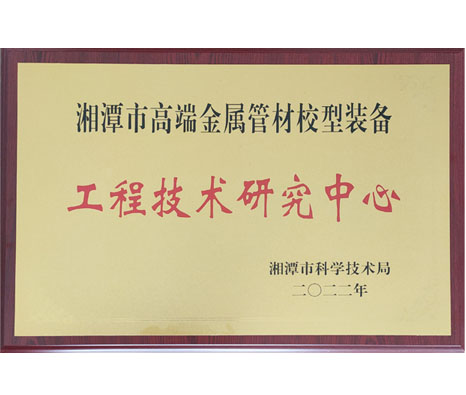 湘潭市高端金属管材校型装备
工程技术研究中心
湘潭市科学技术局
二〇二二年